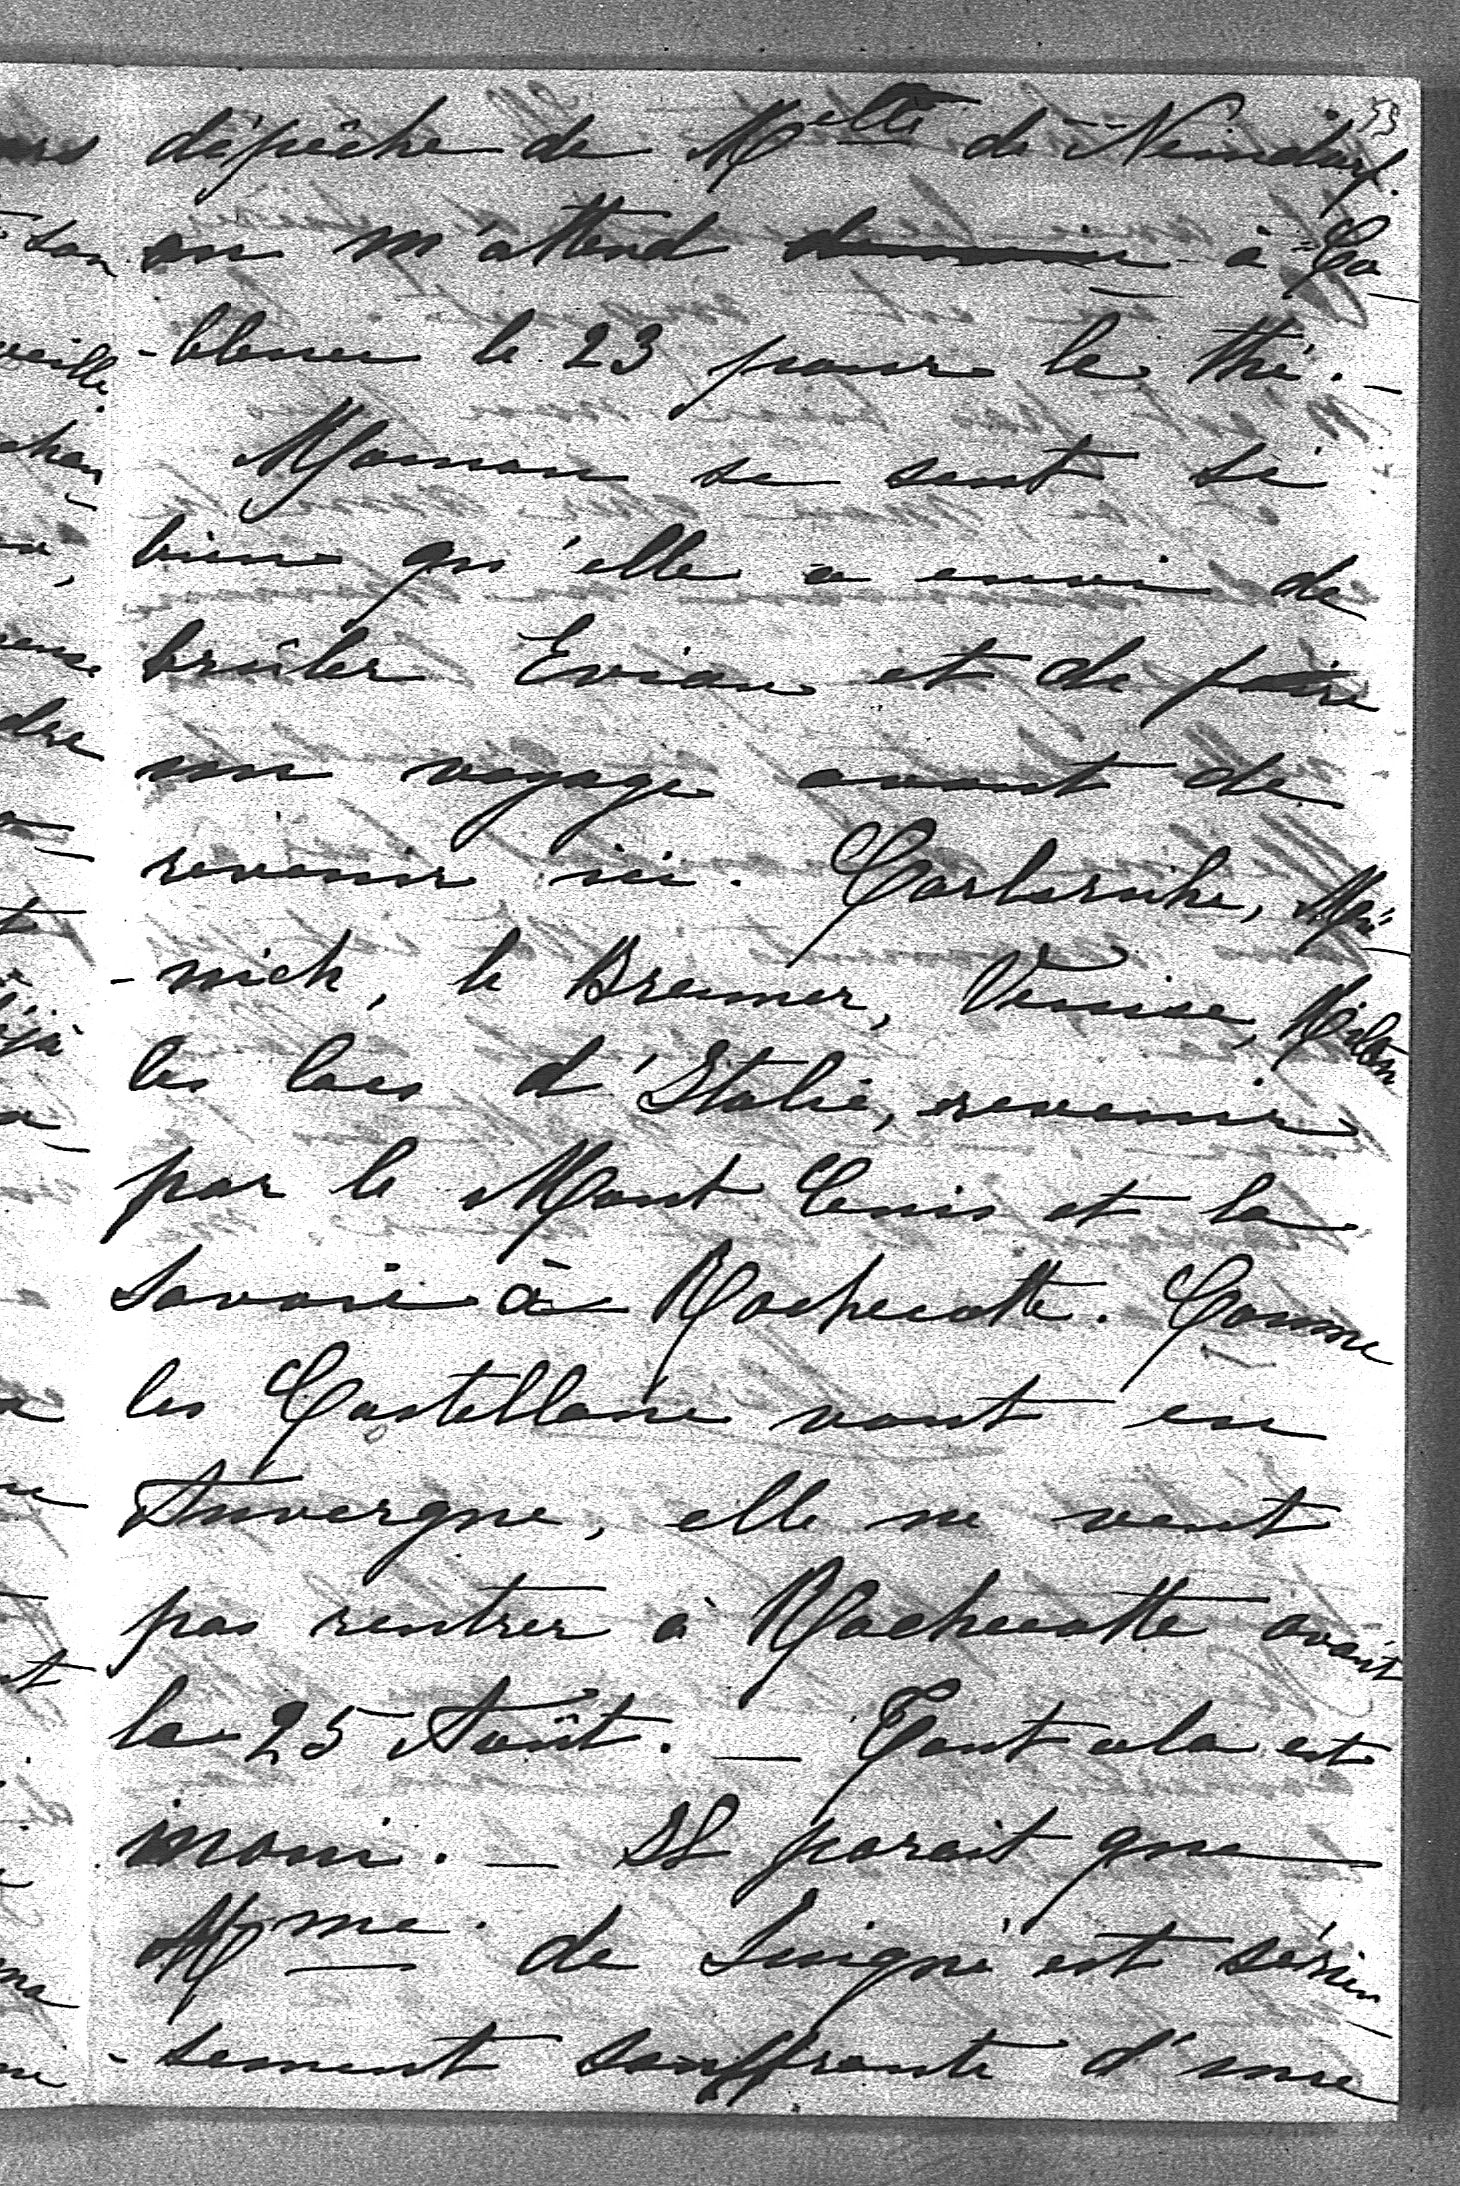 53
dépêche de Melle de Neindorf.
on m'attend à Co-
-blence le 23 pour le thé. —
Maman se sent si
bien qu'elle a envie de
brûler Evian et de faire
un voyage avant de
revenir ici. Carlsruhe, Mu-
-nich, le Brenner, Venise, Milan
les lacs d'Italie, revenir
par le Mont Cenis et la
Savoie à Rochecotte. Comme
les Castellane vont en
Auvergne, elle ne veut
pas rentrer à Rochecotte avant
le 25 Août. — Tout cela est
inouï. — Il parait que
Mme. de est sérieu-
-sement souffrante d'une